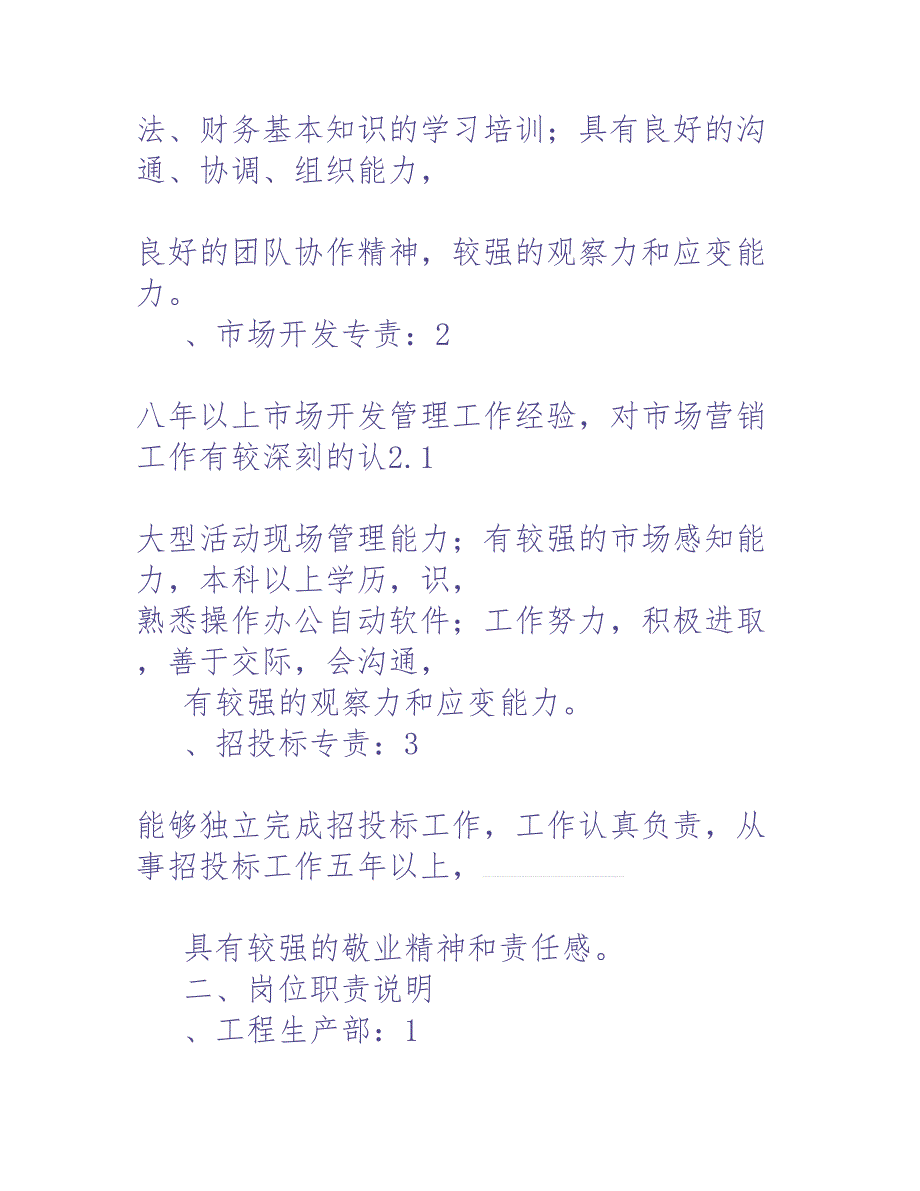 法、财务基本知识的学习培训；具有良好的沟
通、协调、组织能力，
良好的团队协作精神，较强的观察力和应变能
力。
、市场开发专责：2
八年以上市场开发管理工作经验，对市场营销
工作有较深刻的认2.1
大型活动现场管理能力；有较强的市场感知能
力，本科以上学历，识，
熟悉操作办公自动软件；工作努力，积极进取
，善于交际，会沟通，
有较强的观察力和应变能力。
、招投标专责：3
能够独立完成招投标工作，工作认真负责，从
事招投标工作五年以上，
具有较强的敬业精神和责任感。
二、岗位职责说明
、工程生产部：1